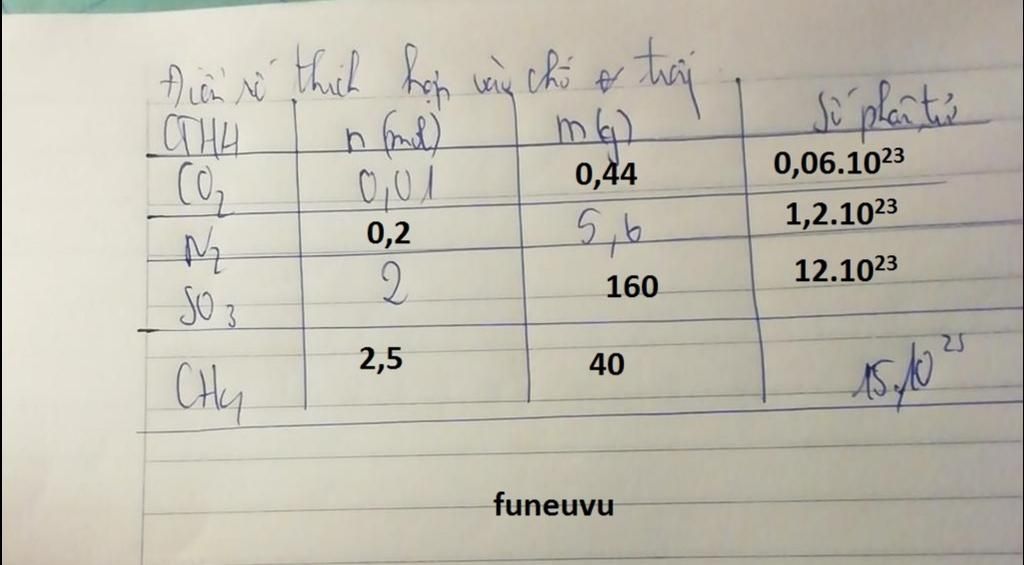 Điền số thích hợp vào chỗ trống
CTHH n (mol) m (g) Số phân tử
CO₂ 0,01 0,44 0,06.10²³
N₂ 0,2 5,6 1,2.10²³
SO₃ 2 160 12.10²³
CH₄ 2,5 40 15.10²³
funeuvu